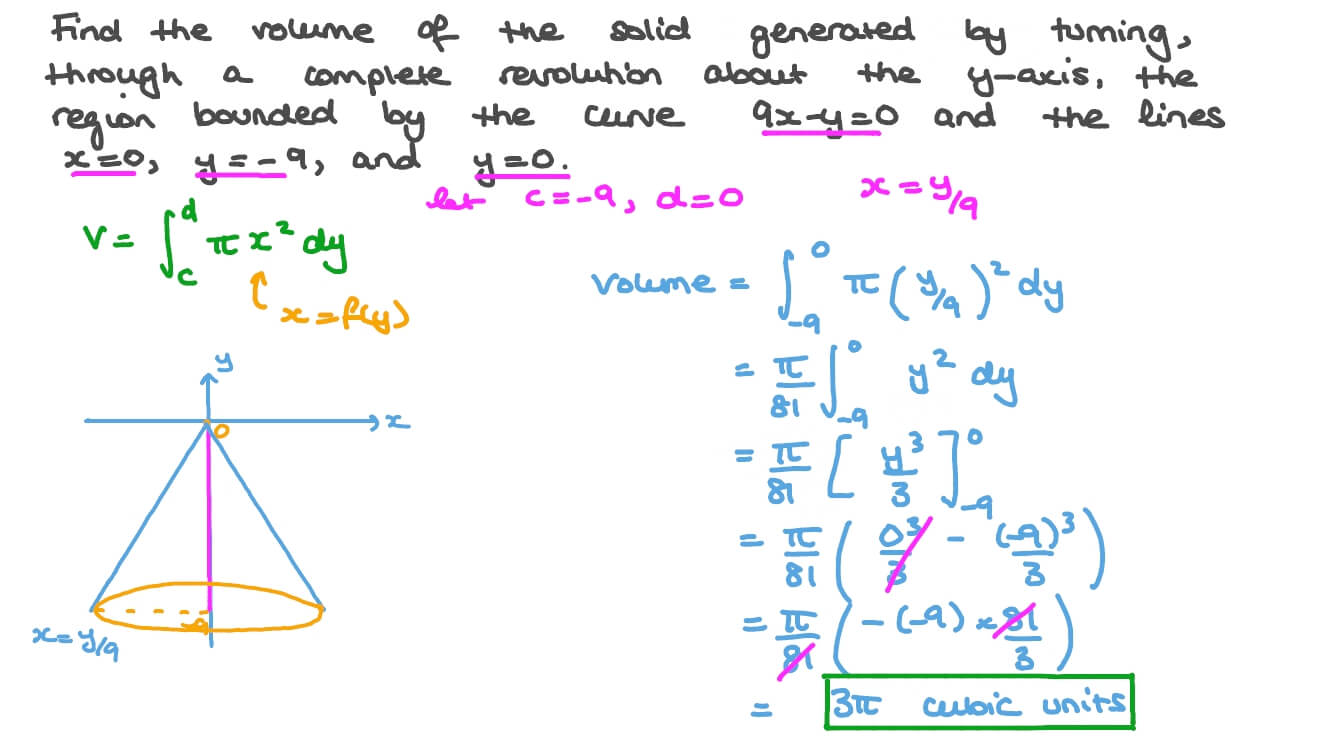 Find the volume of the solid generated by turning,
through a complete revolution about the y-axis, the
region bounded by the curve 9x-y=0 and the lines
x=0, y=-9, and y=0.
let c=-9, d=0
x=y/9
V= ∫_c^d πx² dy
x=f(y)
Volume = ∫_-9^0 π(y/9)² dy
= π/81 ∫_-9^0 y² dy
= π/81 [y³/3]_-9^0
= π/81 (0³/3 - (-9)³/3)
= π/81 (-(-9) × 81/3)
= 3π cubic units
y
x
0
-9
x=y/9